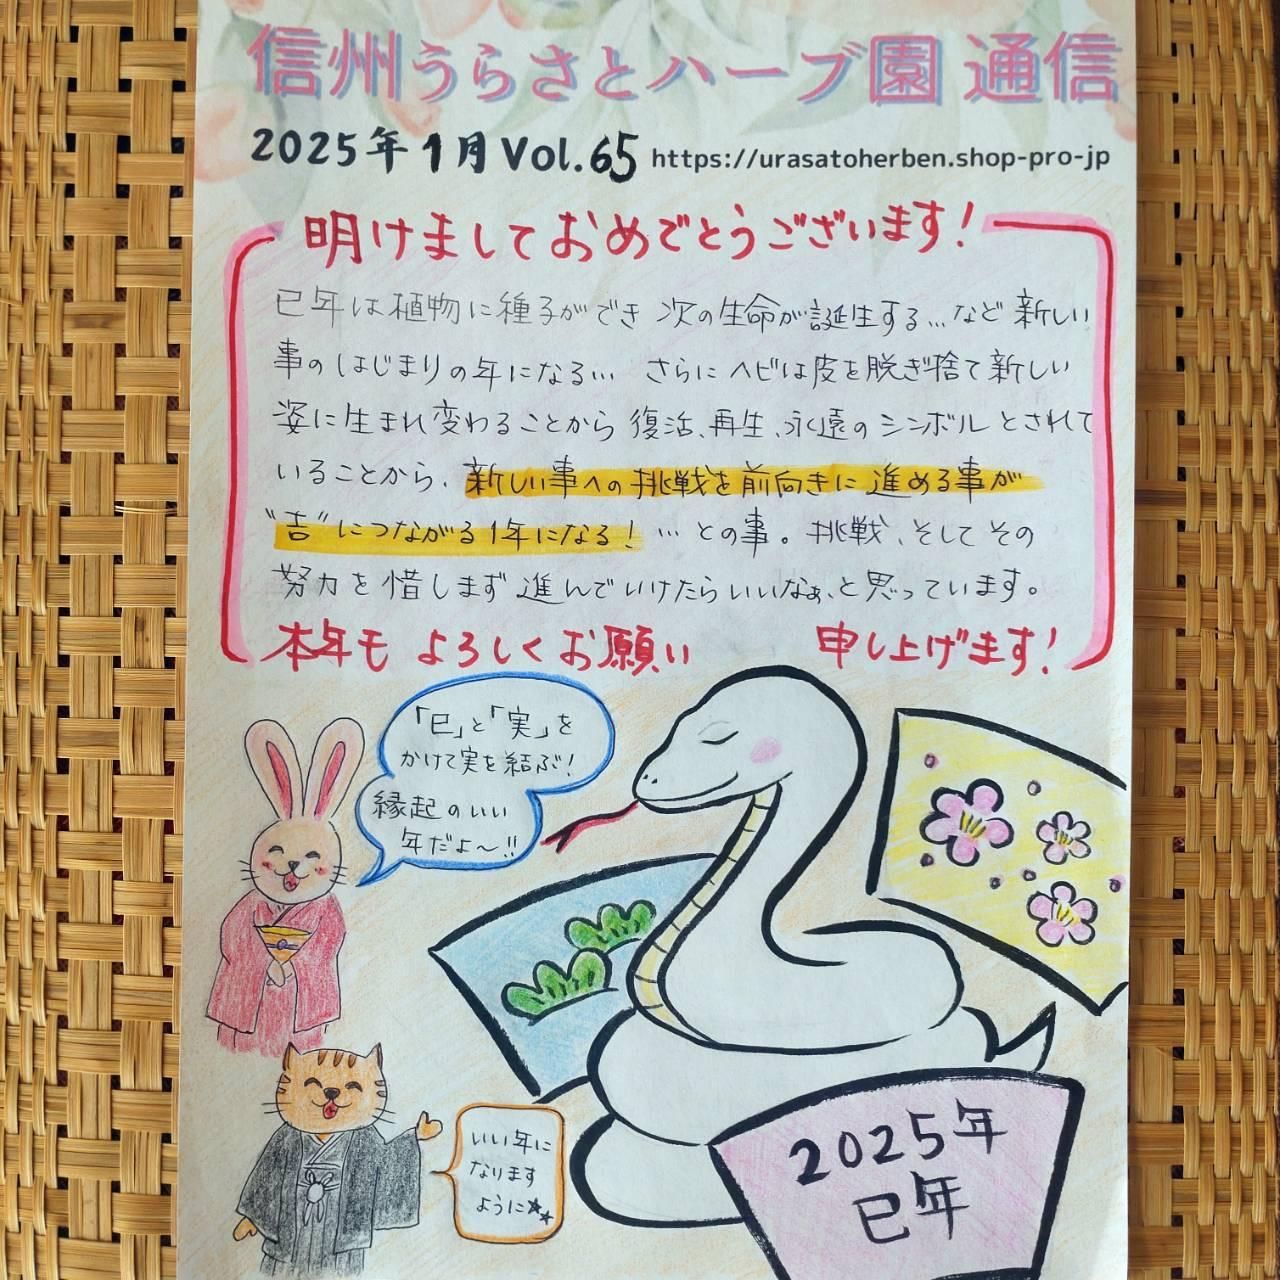 信州うらさとハーブ園 通信
2025年1月 Vol.65 https://urasatoherben.shop-pro-jp
明けましておめでとうございます!
巳年は植物に種子ができ 次の生命が誕生する…など 新しい
事のはじまりの年になる… さらにヘビは皮を脱ぎ捨て新しい
姿に生まれ変わることから 復活、再生、永遠のシンボルとされて
いることから、新しい事への挑戦を前向きに進める事が
"吉"につながる1年になる! …との事。挑戦、そしてその
努力を惜しまず進んでいけたらいいなぁ、と思っています。
本年もよろしくお願い 申し上げます!
「巳」と「実」を
かけて実を結ぶ!
縁起のいい
年だよ〜!!
いい年に
なります
ように☆☆
2025年
巳年